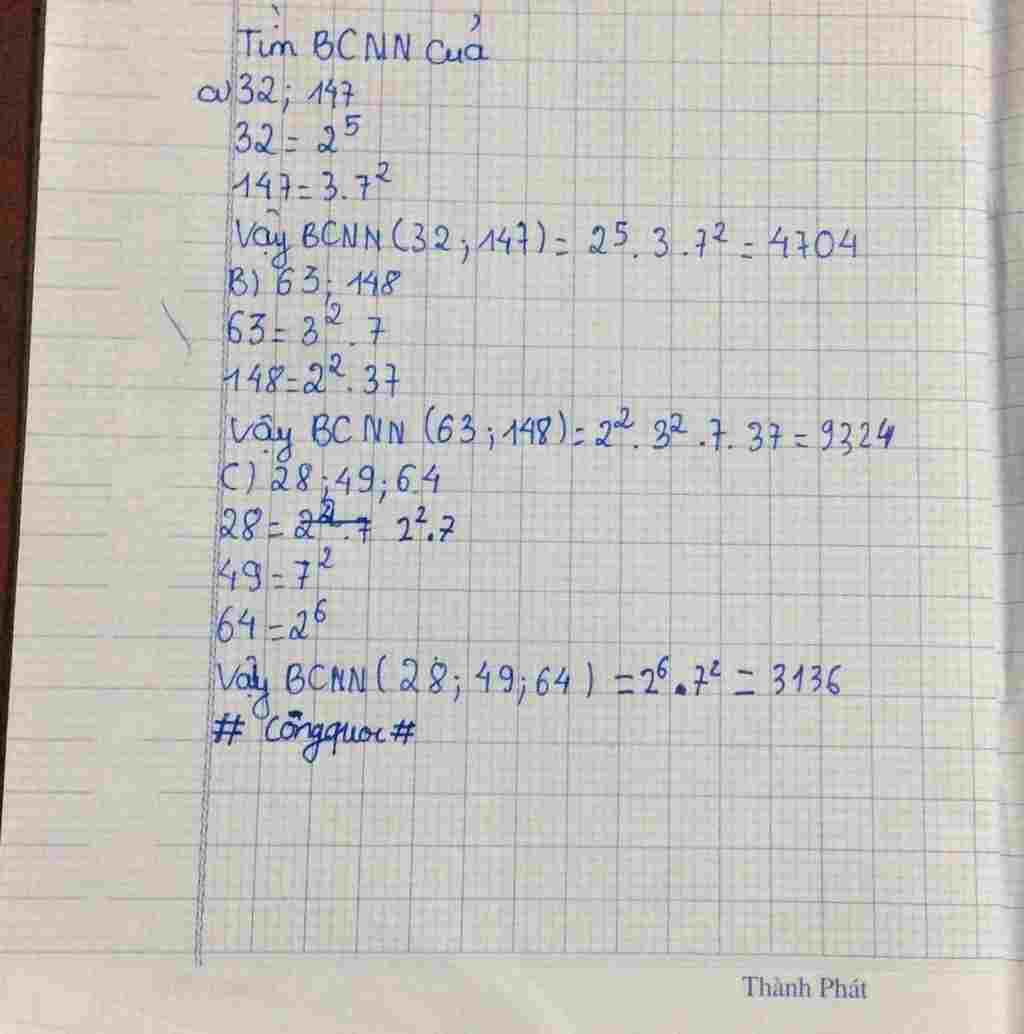 Tìm BCNN Của
a) 32; 147
32 = 2⁵
147 = 3.7²
Vậy BCNN (32; 147) = 2⁵. 3 .7² = 4704
B) 63; 148
63 = 3² . 7
148 = 2². 37
Vậy BCNN (63; 148) = 2². 3² .7. 37 = 9324
C) 28; 49; 64
28 = 2² . 7 2².7
49 = 7²
64 = 2⁶
Vậy BCNN (28; 49; 64) = 2⁶ . 7² = 3136
# Côngquoc #
Thành Phát